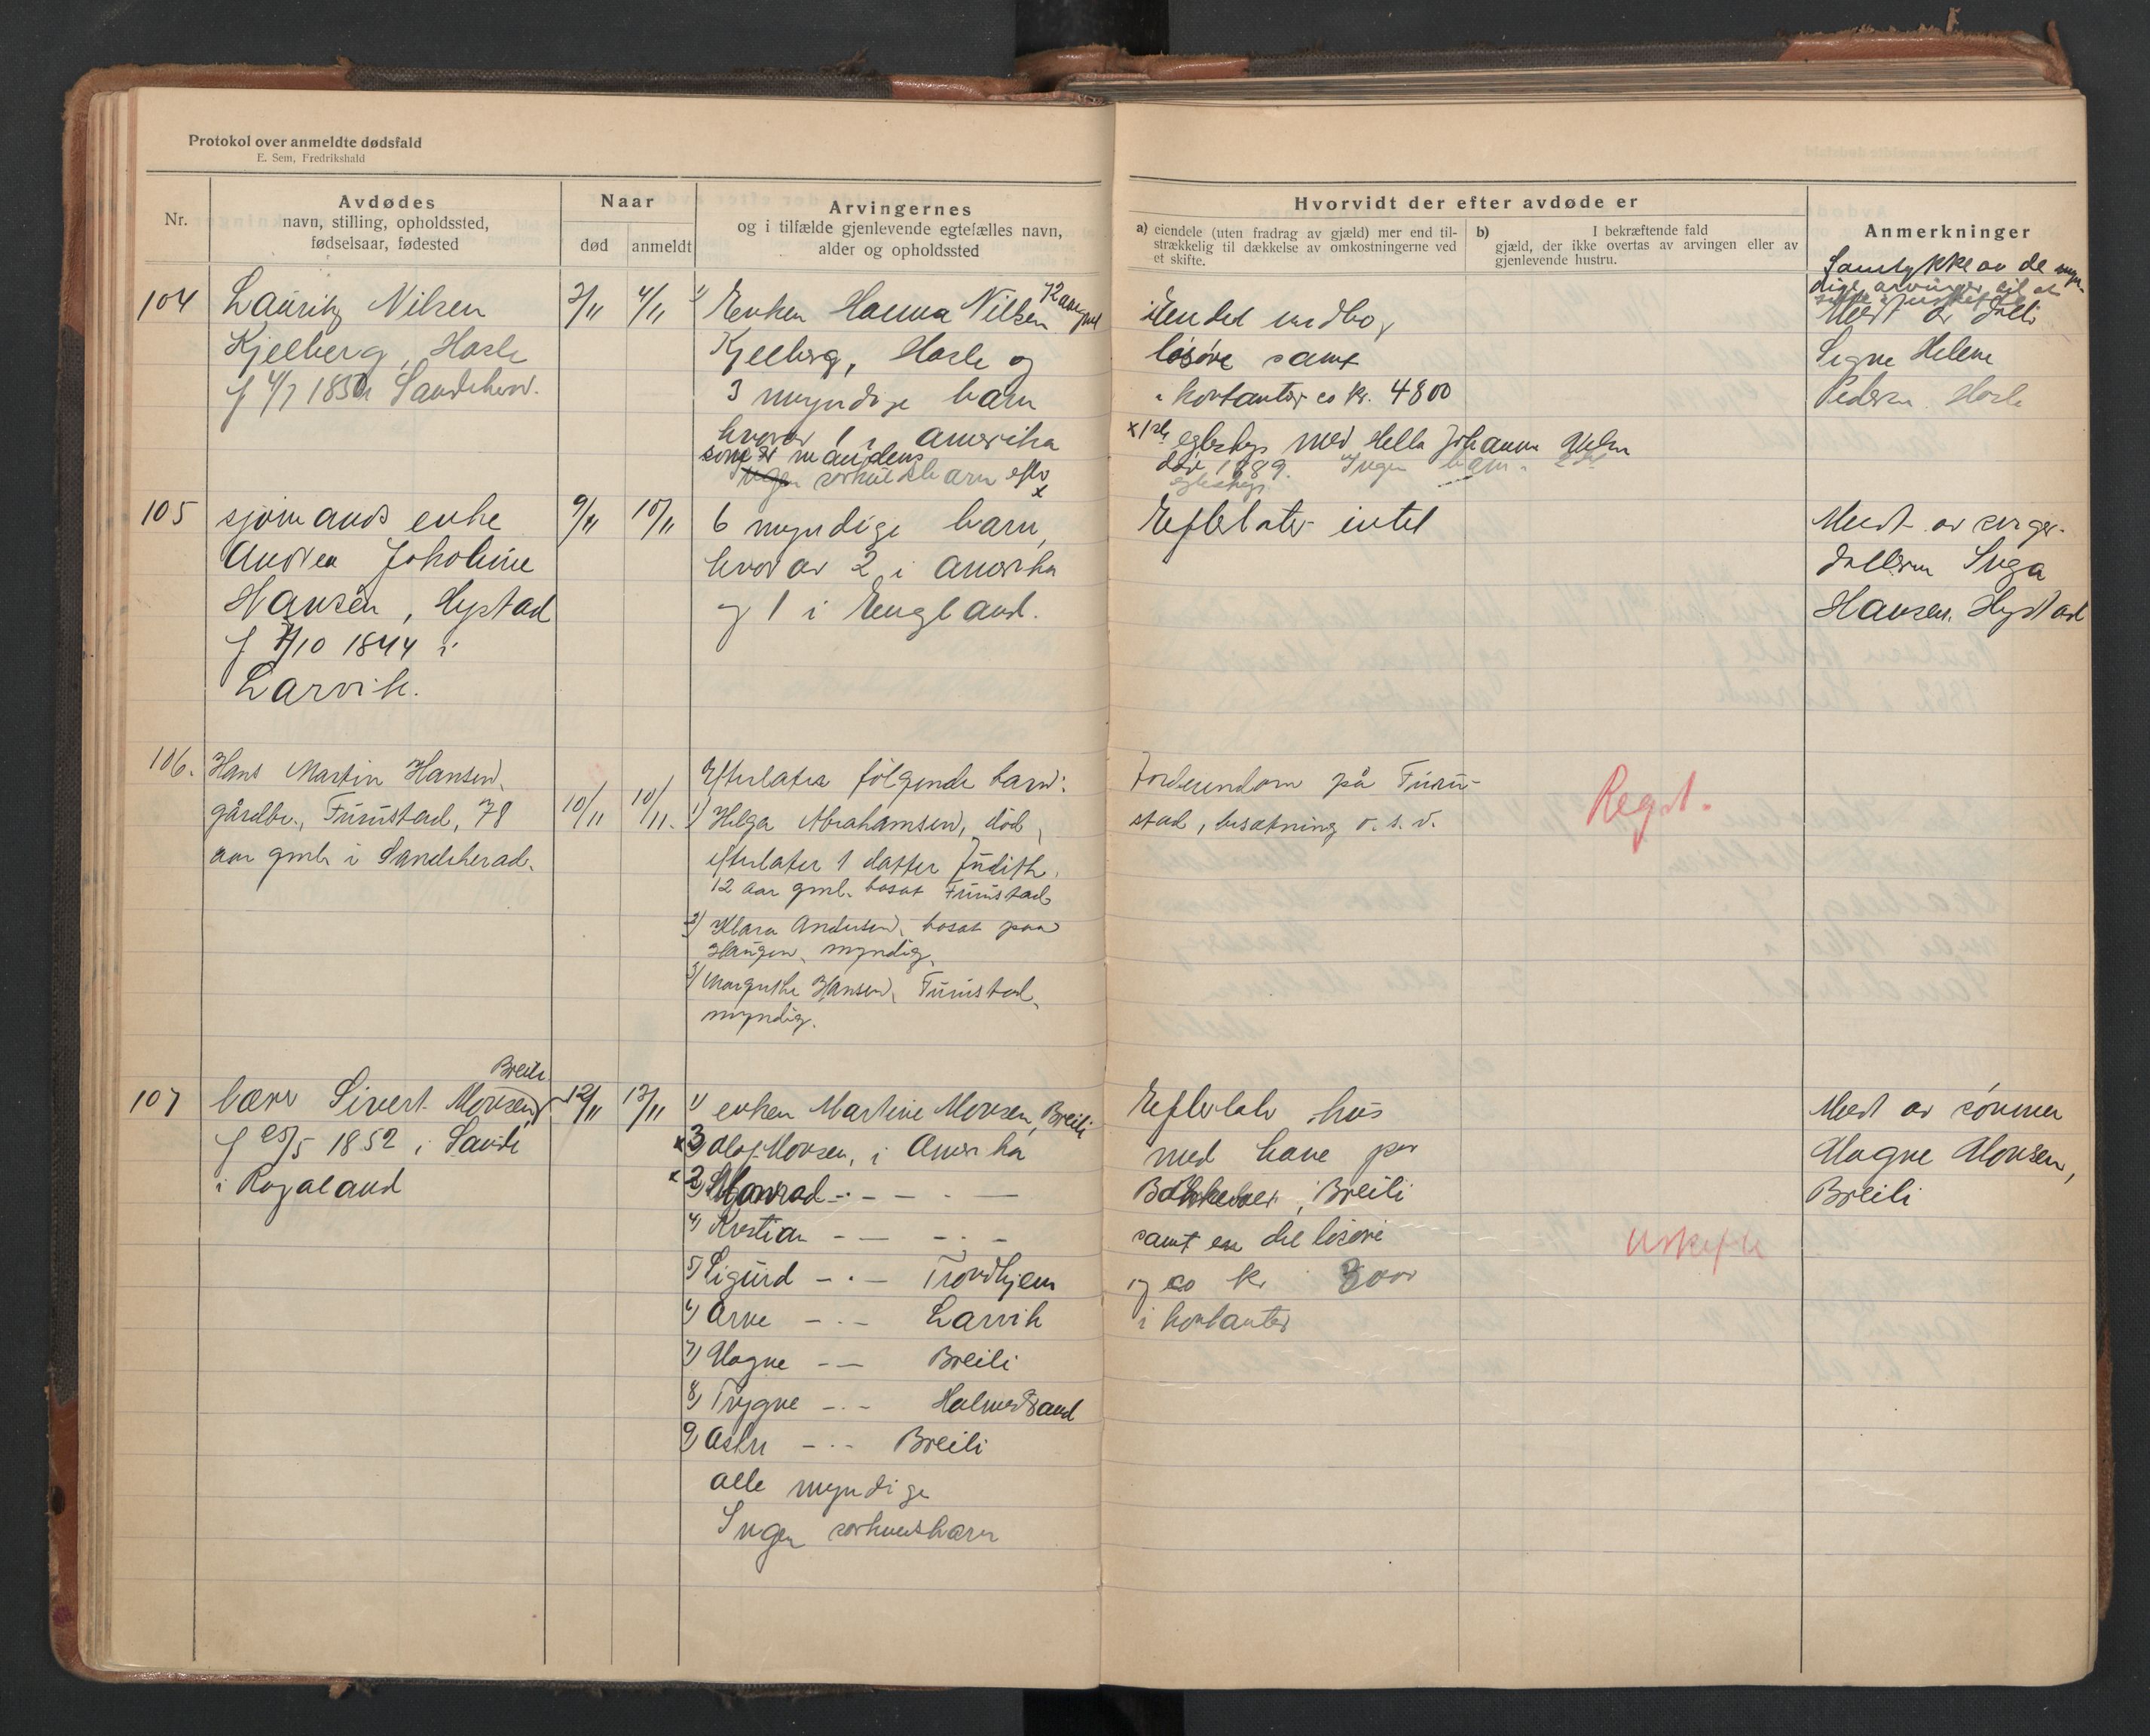 Protokol over anmeldte dødsfald
E. Sem, Fredrikshald
Nr.
Avdødes
navn, stilling, opholdssted,
fødselsaar, fødested
Naar
død
anmeldt
Arvingernes
og i tilfælde gjenlevende egtefælles navn,
alder og opholdssted
Hvorvidt der efter avdøde er
a) eiendele (uten fradrag av gjæld) mer end til-
strækkelig til dækkelse av omkostningerne ved
et skifte.
b) I bekræftende fald
gjæld, der ikke overtas av arvingen eller av
gjenlevende hustru.
Anmerkninger
104
Lauritz Nilsen
Kjelberg, Hasle
f 4/7 1850 i Sandeherr.
3/11
4/11
1) Enken Hanna Nilsen 72 aar gml
Kjelberg, Hasle og
3 myndige barn
hvorav 1 i Amerika
som er mandens
Ingen særkulsbarn efter x
Endel indbo,
løsøre samt
i kontanter ca kr. 4800
x 1ste egteskap med Hella Johanne Nilsen
død 1889. Ingen barn i
egteskap.
Samtykke av de myn-
dige arvinger til at
sitte i uskiftet bo
Meldt av datter
Signe Helene
Pedersen Hasle
105
sjømands enke
Andrea Jokobine
Hansen, Hystad
f 7/10 1844 i
Larvik.
9/11
10/11
6 myndige barn,
hvorav 2 i Amerika
og 1 i England.
Efterlater intet
Meldt av sviger-
datteren Inga
Hansen, Hystad
106.
Hans Martin Hansen,
gårdbr., Furustad, 78
aar gml. i Sandeherad.
10/11
10/11.
Efterlater følgende barn:
1) Helga Abrahamsen, død,
efterlater 1 datter Judith,
12 aar gml. bosat Furustad
2) Klara Andersen, bosat paa
Haugen, myndig.
3) Margrethe Hansen, Furustad,
myndig.
Jordeiendom på Furu-
stad, besætning o. s. v.
Regst.
107
Lærer Sivert Monsen, Breili
f 25/5 1852 i Sande
i Rogaland
12/11
13/11
1) enken Martine Monsen, Breili
x 3) Olaf Monsen, i Amerika
x 2) Konrad – · – – · –
4) Kristian – – – · –
5) Sigurd – · – Trondhjem
6) Arne – · – Larvik
7) Magne – – Breili
8) Trygve – · – Holmestrand
9) Astri – · – Breili
alle myndige
Ingen særkulsbarn
Efterlater hus
med have paa
Breili
samt en del løsøre
og ca kr 3000
i kontanter
uskifte
Meldt av sønnen
Magne Monsen,
Breili